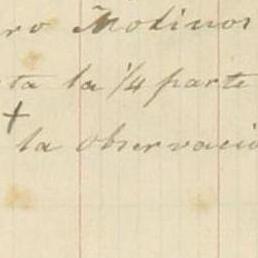 ro Molinos
ta la 1/4 parte
+
la Observació